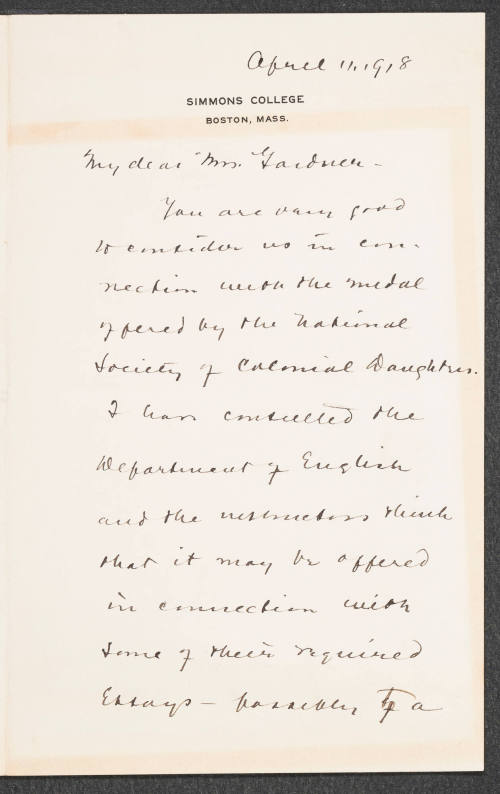 April 11, 1918
SIMMONS COLLEGE
BOSTON, MASS.
My dear Mrs. Gardner -
You are very good
to consider us in con-
nection with the medal
offered by the National
Society of Colonial Daughters.
I have consulted the
Department of English
and the instructors think
that it may be offered
in connection with
some of their required
Essays - possibly a